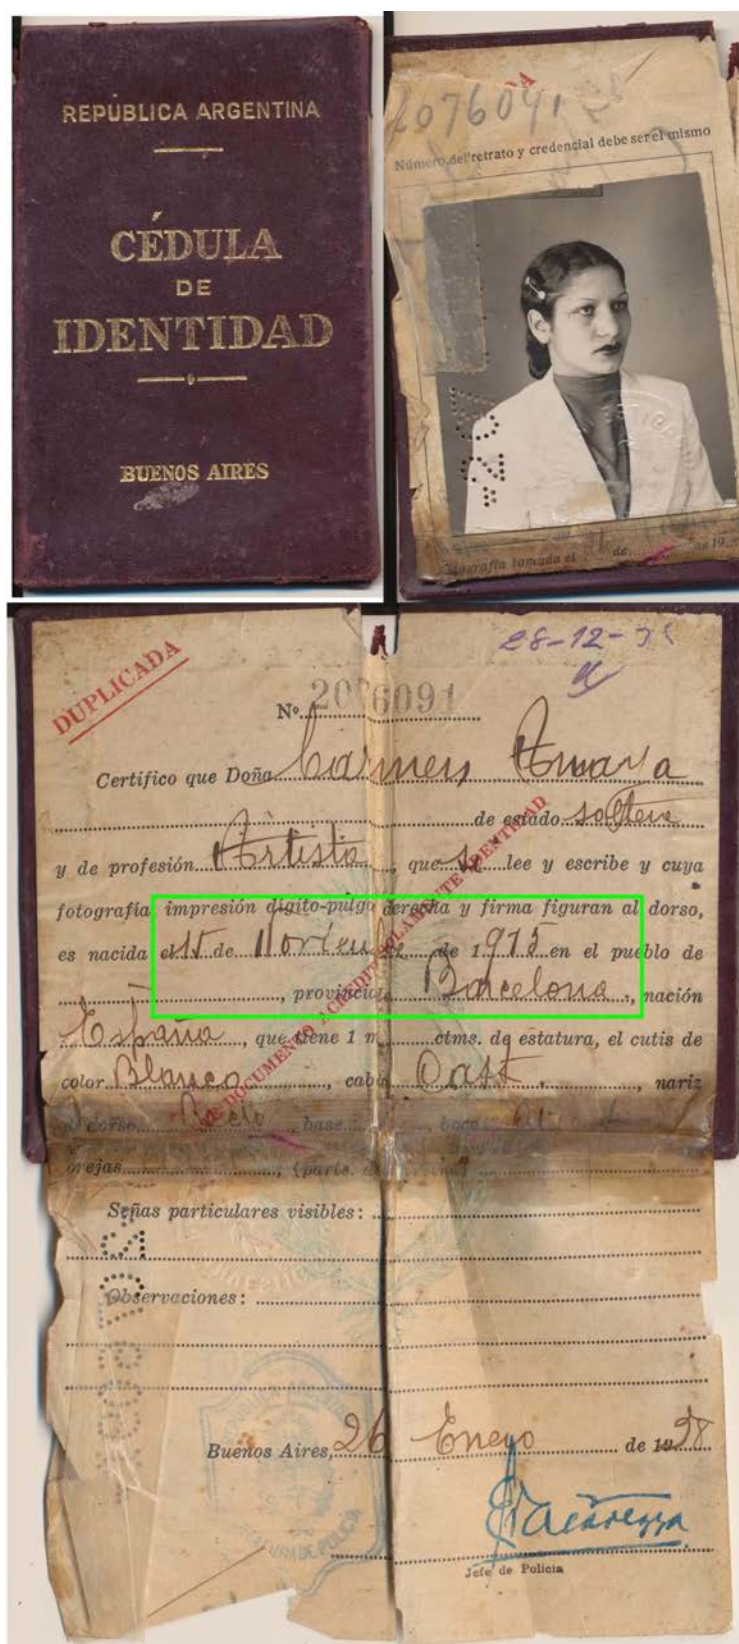 REPÚBLICA ARGENTINA
CÉDULA
DE
IDENTIDAD
BUENOS AIRES
2076091
Número del retrato y credencial debe ser el mismo
Fotografía tomada el de de 19
DUPLICADA
28-12-
Nº 2076091
Certifico que Doña Carmen Amaya
de estado soltera
y de profesión Artista, que se lee y escribe y cuya
fotografía impresión dígito-pulgo derecha y firma figuran al dorso,
es nacida el 15 de de 1915 en el pueblo de
, provincia Barcelona, nación
España, que tiene 1 m. ctms. de estatura, el cutis de
color Blanco, cab. Cast., nariz
dorso Recto, base boca
orejas
DOCUMENTO ACREDITA SOLAMENTE IDENTIDAD
Señas particulares visibles:
Observaciones:
Buenos Aires, 26 Eneyo de 1938
Jefe de Policia